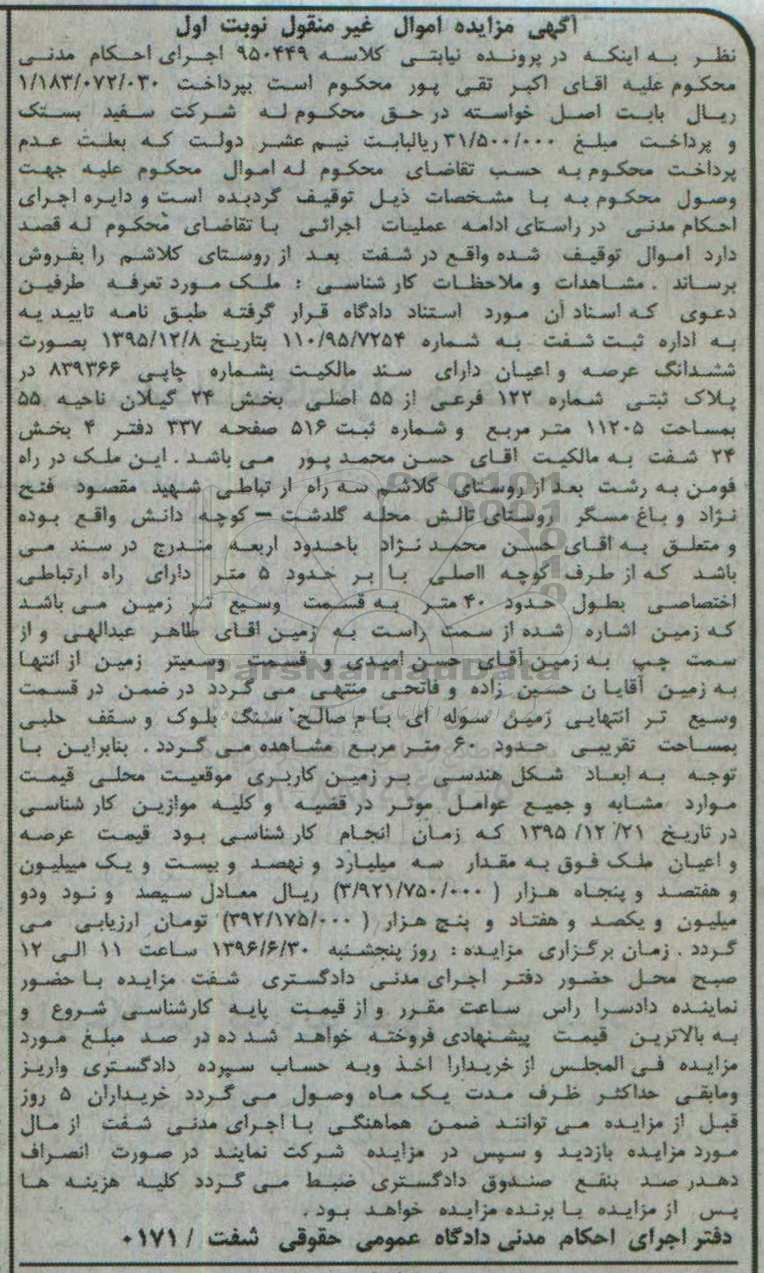 آگهی مزایده اموال غیر منقول نوبت اول
نظر به اینکه در پرونده نیابتی کلاسه ۹۵۰۴۴۹ اجرای احکام مدنی
محکوم علیه اقای اکبر تقی پور محکوم است بپرداخت ۱/۱۸۳/۰۷۲/۰۳۰
ریال بابت اصل خواسته در حق محکوم له شرکت سفید بستک
و پرداخت مبلغ ۳۱/۵۰۰/۰۰۰ ریالبابت نیم عشر دولت که بعلت عدم
پرداخت محکوم به حسب تقاضای محکوم له اموال محکوم علیه جهت
وصول محکوم به با مشخصات ذیل توقیف گردیده است و دایره اجرای
احکام مدنی در راستای ادامه عملیات اجرائی با تقاضای محکوم له قصد
دارد اموال توقیف شده واقع در شفت بعد از روستای کلاشم را بفروش
برساند . مشاهدات و ملاحظات کارشناسی : ملک مورد تعرفه طرفین
دعوی که اسناد آن مورد استناد دادگاه قرار گرفته طبق نامه تاییدیه
به اداره ثبت شفت به شماره ۱۱۰/۹۵/۷۲۵۴ بتاریخ ۱۳۹۵/۱۲/۸ بصورت
ششدانگ عرصه و اعیان دارای سند مالکیت بشماره چاپی ۸۳۹۳۶۶ در
پلاک ثبتی شماره ۱۲۲ فرعی از ۵۵ اصلی بخش ۲۴ گیلان ناحیه ۵۵
بمساحت ۱۱۲۰۵ متر مربع و شماره ثبت ۵۱۶ صفحه ۳۳۷ دفتر ۴ بخش
۲۴ شفت به مالکیت اقای حسن محمد پور می باشد . این ملک در راه
فومن به رشت بعد از روستای کلاشم سه راه ارتباطی شهید مقصود فتح
نژاد و باغ مسگر روستای تالش محله گلدشت – کوچه دانش واقع بوده
و متعلق به اقای حسن محمد نژاد باحدود اربعه مندرج در سند می
باشد که از طرف کوچه ااصلی با بر حدود ۵ متر دارای راه ارتباطی
اختصاصی بطول حدود ۴۰ متر به قسمت وسیع تر زمین می باشد
که زمین اشاره شده از سمت راست به زمین اقای طاهر عبدالهی و از
سمت چپ به زمین آقای حسن امیدی و قسمت وسعیتر زمین از انتها
به زمین آقایان حسین زاده و فاتحی منتهی می گردد در ضمن در قسمت
وسیع تر انتهایی زمین سوله ای با م صالح سنگ بلوک و سقف حلبی
بمساحت تقریبی حدود ۶۰ متر مربع مشاهده می گردد . بنابراین با
توجه به ابعاد شکل هندسی بر زمین کاربری موقعیت محلی قیمت
موارد مشابه و جمیع عوامل موثر در قضیه و کلیه موازین کارشناسی
در تاریخ ۱۳۹۵/۱۲/۲۱ که زمان انجام کارشناسی بود قیمت عرصه
و اعیان ملک فوق به مقدار سه میلیارد و نهصد و بیست و یک میپلیون
و هفتصد و پنجاه هزار ( ۳/۹۲۱/۷۵۰/۰۰۰) ریال معادل سیصد و نود ودو
میلیون و یکصد و هفتاد و پنج هزار ( ۳۹۲/۱۷۵/۰۰۰) تومان ارزیابی می
گردد . زمان برگزاری مزایده : روز پنجشنبه ۱۳۹۶/۶/۳۰ ساعت ۱۱ الی ۱۲
صبح محل حضور دفتر اجرای مدنی دادگستری شفت مزایده با حضور
نماینده دادسرا راس ساعت مقرر و از قیمت پایه کارشناسی شروع و
به بالاترین قیمت پیشنهادی فروخته خواهد شد ده در صد مبلغ مورد
مزایده فی المجلس از خریدارا اخذ وبه حساب سپرده دادگستری واریز
ومابقی حداکثر ظرف مدت یک ماه وصول می گردد خریداران ۵ روز
قبل از مزایده می توانند ضمن هماهنگی با اجرای مدنی شفت از مال
مورد مزایده بازدید و سپس در مزایده شرکت نمایند در صورت انصراف
دهدرصد بنفع صندوق دادگستری ضبط می گردد کلیه هزینه ها
پس از مزایده با برنده مزایده خواهد بود .
دفتر اجرای احکام مدنی دادگاه عمومی حقوقی شفت / ۰۱۷۱
ParsNamadData